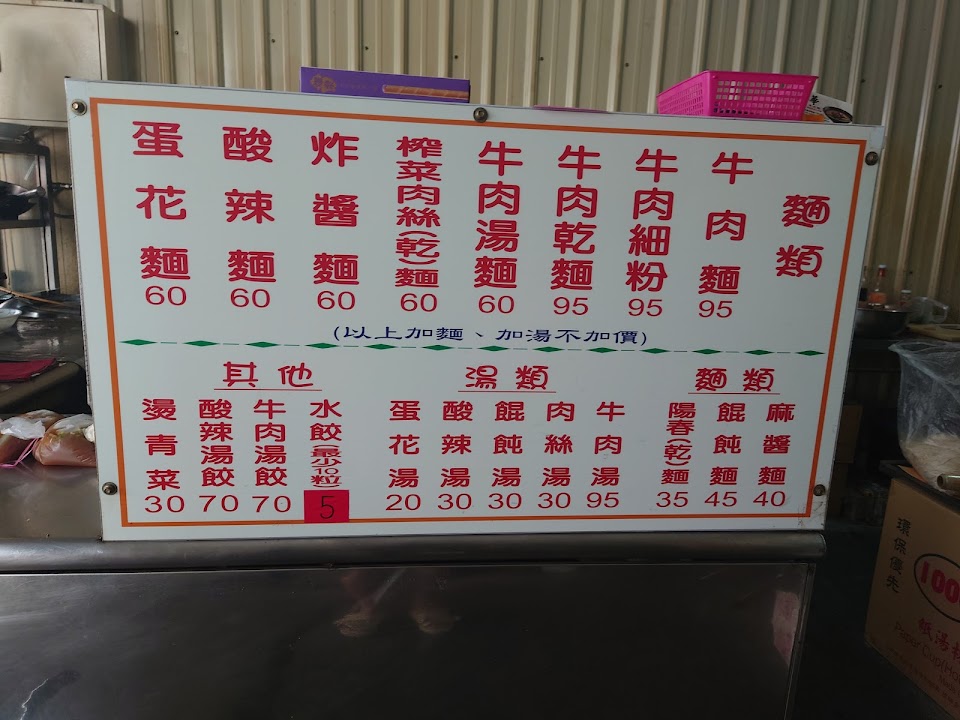 麵類
牛肉麵 95
牛肉細粉 95
牛肉乾麵 95
牛肉湯麵 60
榨菜肉絲(乾)麵 60
炸醬麵 60
酸辣麵 60
蛋花麵 60
(以上加麵、加湯不加價)
麵類
麻醬麵 40
餛飩麵 45
陽春(乾)麵 35
湯類
牛肉湯 95
肉絲湯 30
餛飩湯 30
酸辣湯 30
蛋花湯 20
其他
水餃(最少10粒) 5
牛肉湯餃 70
酸辣湯餃 70
燙青菜 30
環保優先
100
紙湯杯